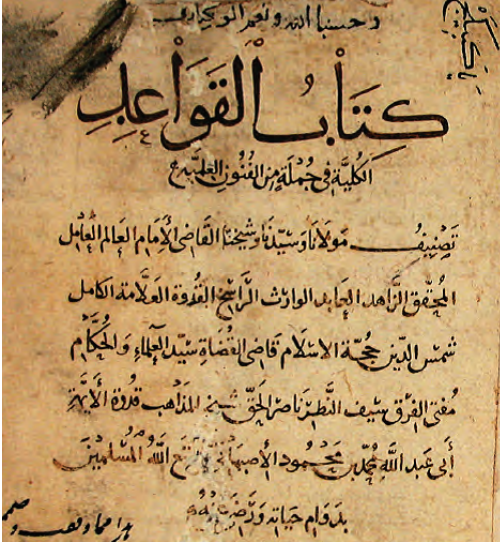 وحسبنا الله ونعم الوكيل
كِتَابُ القَوَاعِدِ
الكُلِيَّة فى جُمْلَةٍ مِنَ الفُنُونِ العِلْمِيَّة
تَصْنِيفُ مَوْلَانَا وَسَيِّدنَا وَشَيْخنَا القَاضى الأِمَام العَالم العَامل
المُحَقّق الزَّاهد العَابد الوَارث الرَّاسخ القُدْوة العَلَّامة الكَامل
شَمْس الدّين حُجَّة الاسْلَام قَاضى القُضَاةِ سَيّد العُلَمَاءِ وَالحُكَّام
مُفْتى الفِرَق سَيْف النَّظَر نَاصر الحَقّ شيخ المَذَاهب قُدْوة الأَئِمَّةِ
أَبى عَبد اللَّهِ مُحَمَّد بن مَحْمُود الأَصبهَانى مَتَّعَ اللَّهُ المُسْلمينَ
بِدَوَام حَيَاته وَرَضِىَ عَنْهُ